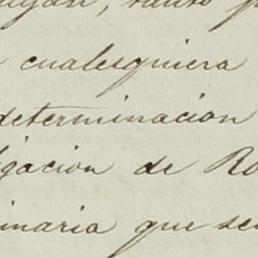 tanto
cualesquiera
determinacion
igacion de Ro
inaria que se